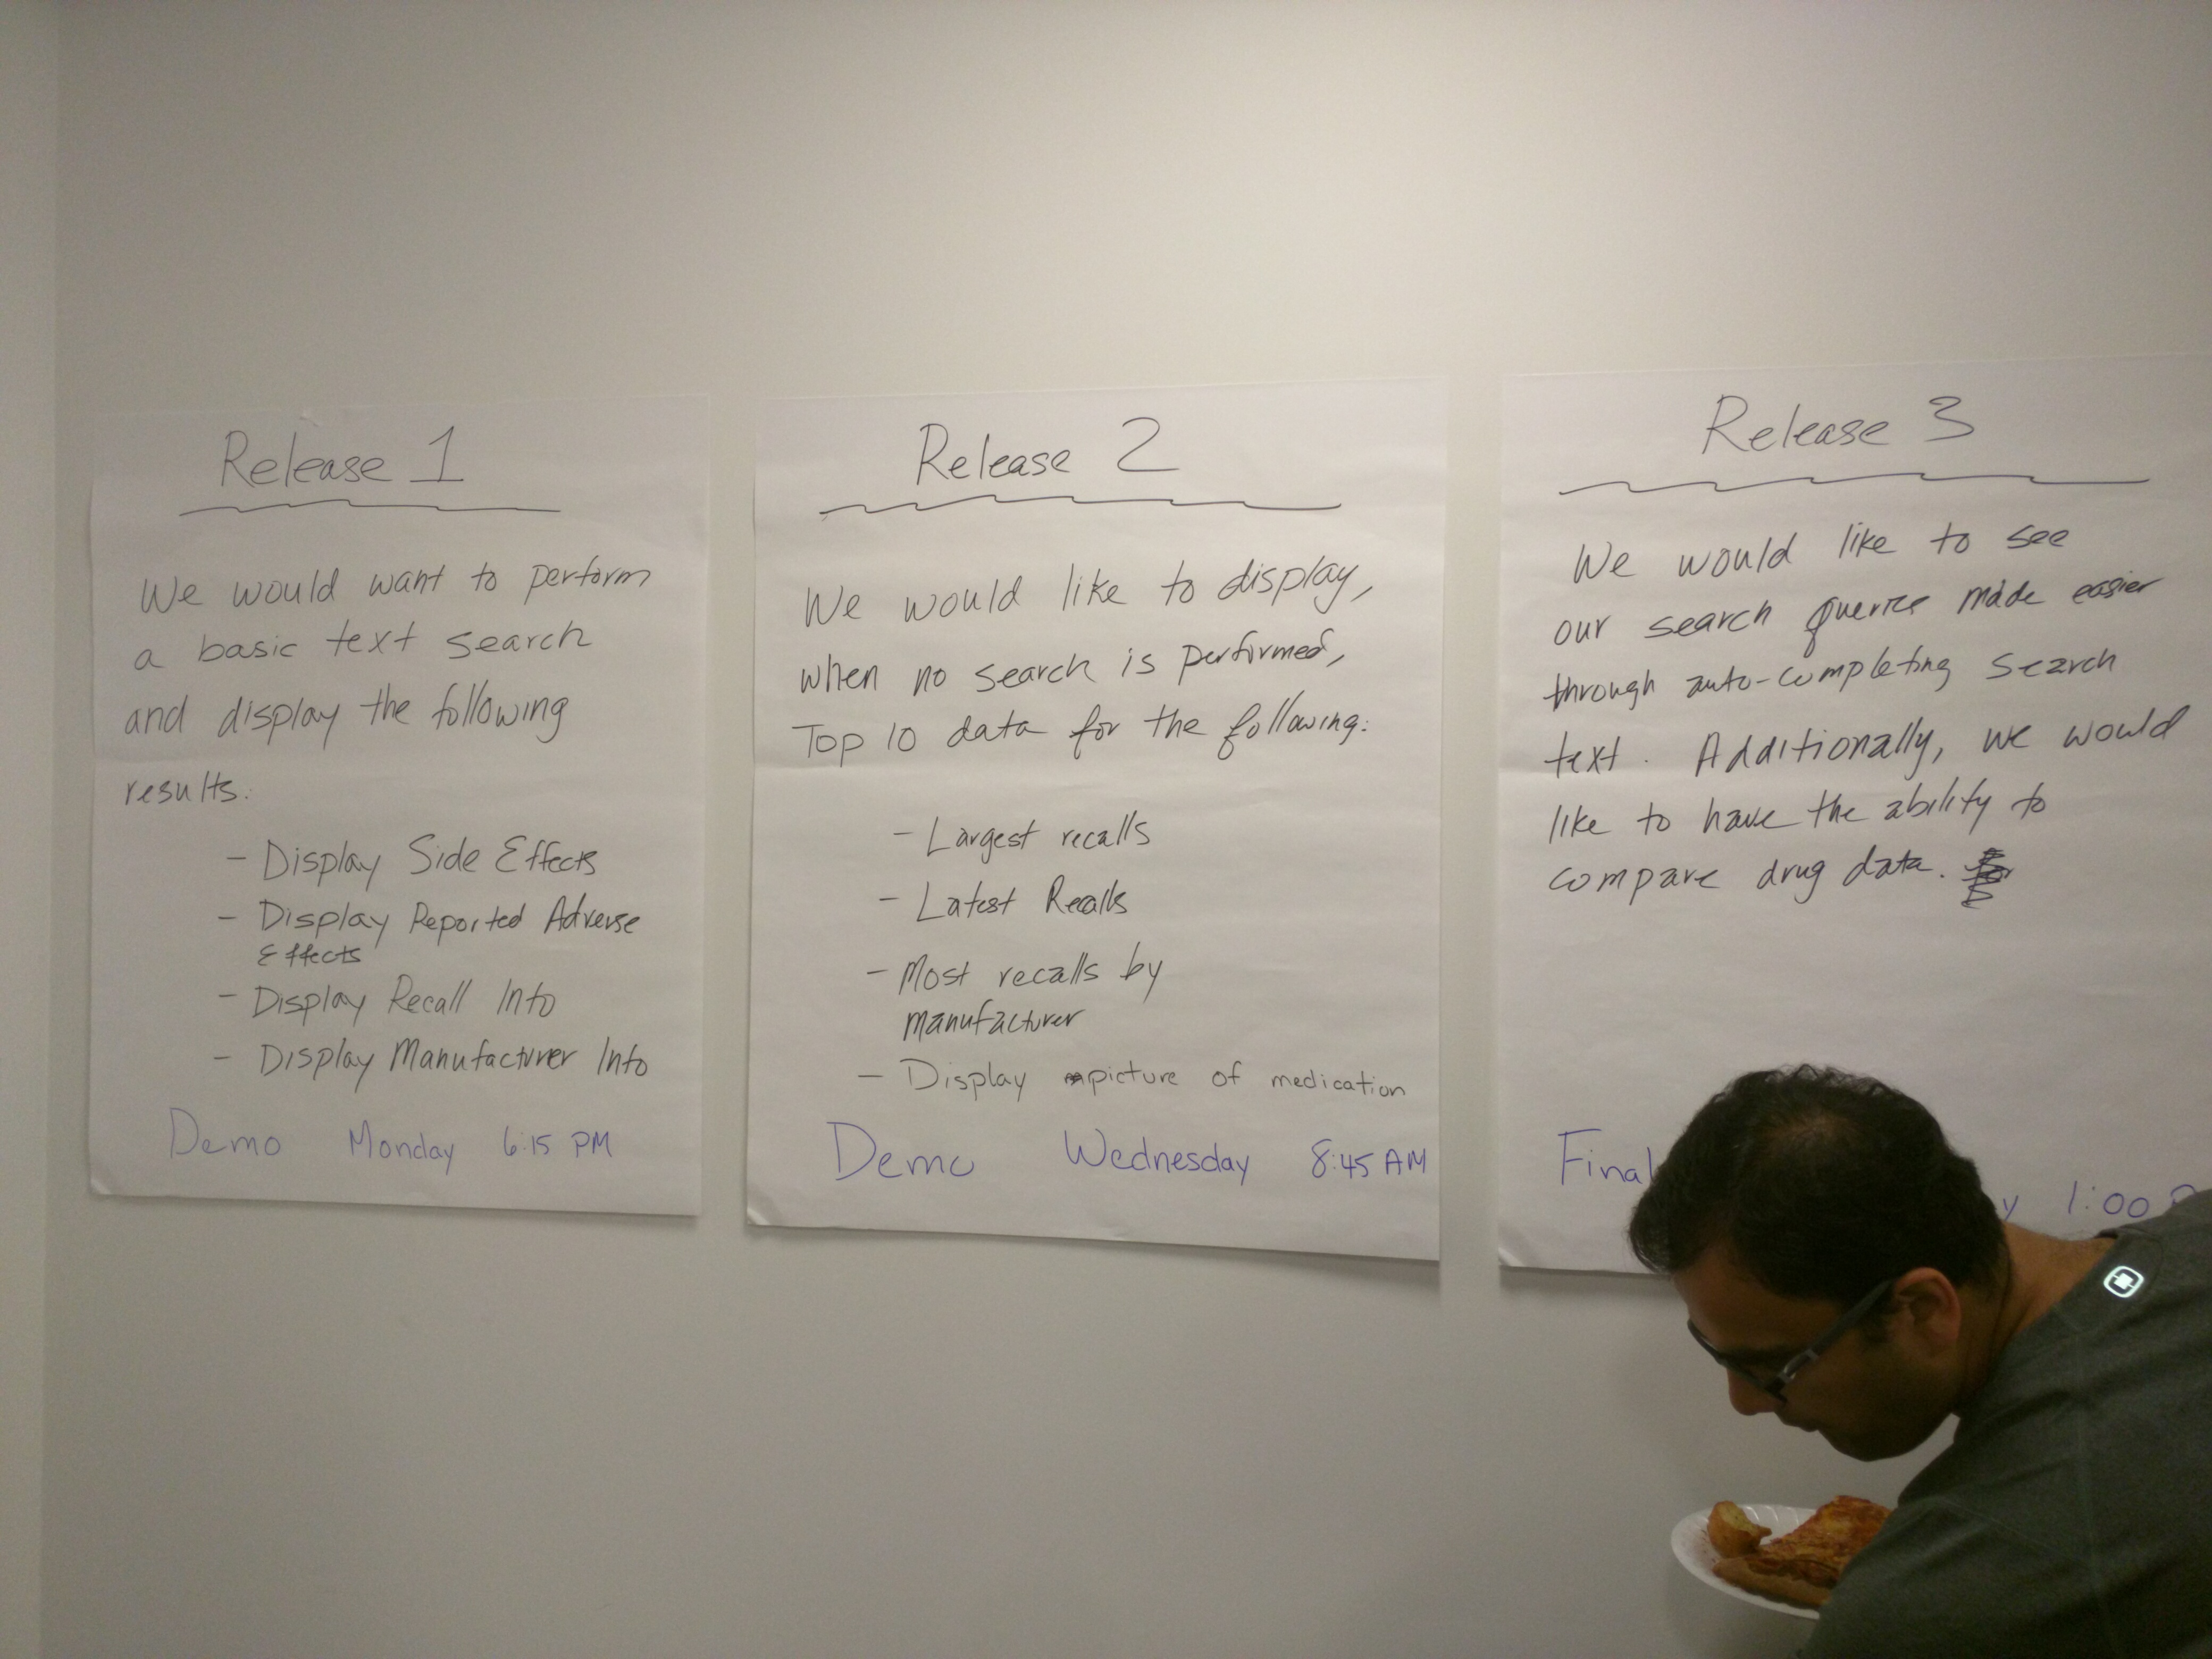 Release 1
We would want to perform
a basic text search
and display the following
results:
- Display Side Effects
- Display Reported Adverse
Effects
- Display Recall Info
- Display Manufacturer Info
Demo Monday 6:15 PM
Release 2
We would like to display,
when no search is performed,
Top 10 data for the following:
- Largest recalls
- Latest Recalls
- Most recalls by
manufacturer
- Display picture of medication
Demo Wednesday 8:45 AM
Release 3
We would like to see
our search queries made easier
through auto-completing search
text. Additionally, we would
like to have the ability to
compare drug data.
Final
1:00